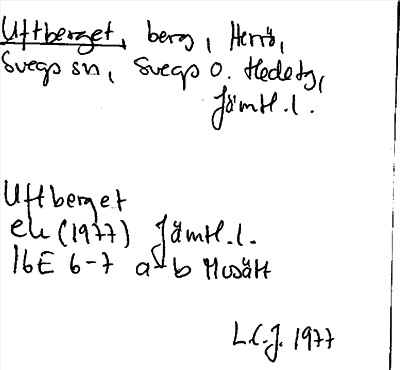 Uftberget, berg, Herrö,
Svegs sn, Svegs o. Hede tg,
Jämtl. l.
Uftberget
ek (1977) Jämtl. l.
16E 6-7 a-b Mosätt
L.C.J. 1977